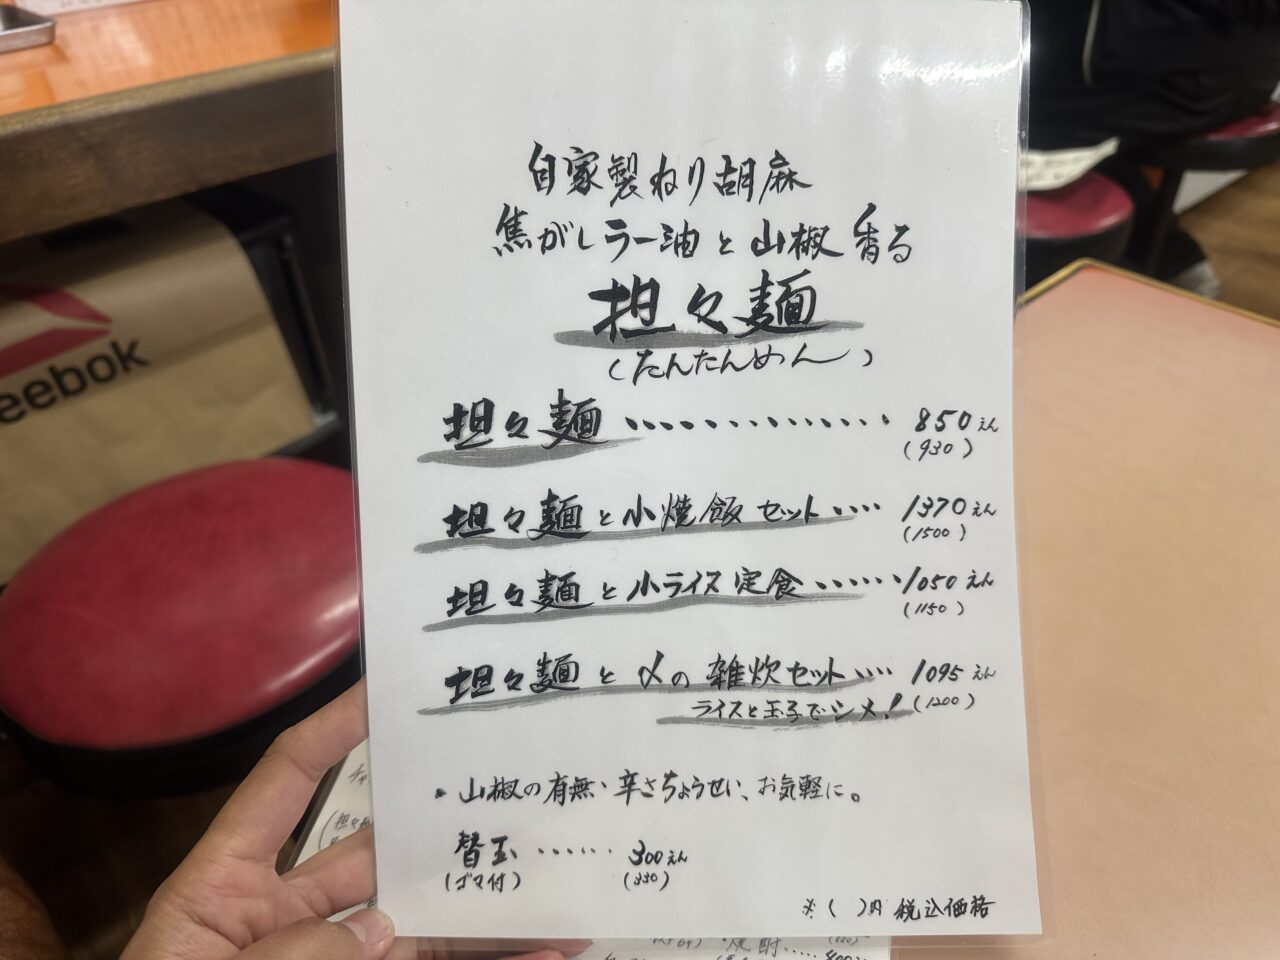 自家製ねり胡麻
焦がしラー油と山椒香る
担々麺
(たんたんめん)
担々麺・・・・・・・・・・・・・・ 850えん
(930)
担々麺と小焼飯セット・・・・ 1370えん
(1500)
担々麺と小ライス定食・・・・・・ 1050えん
(1150)
担々麺と〆の雑炊セット・・・・ 1095えん
ライスと玉子でシメ! (1200)
・山椒の有無・辛さちょうせい、お気軽に。
替玉・・・・・・ 300えん
(ゴマ付) (330)
※( )内 税込価格
eebok
焼酎